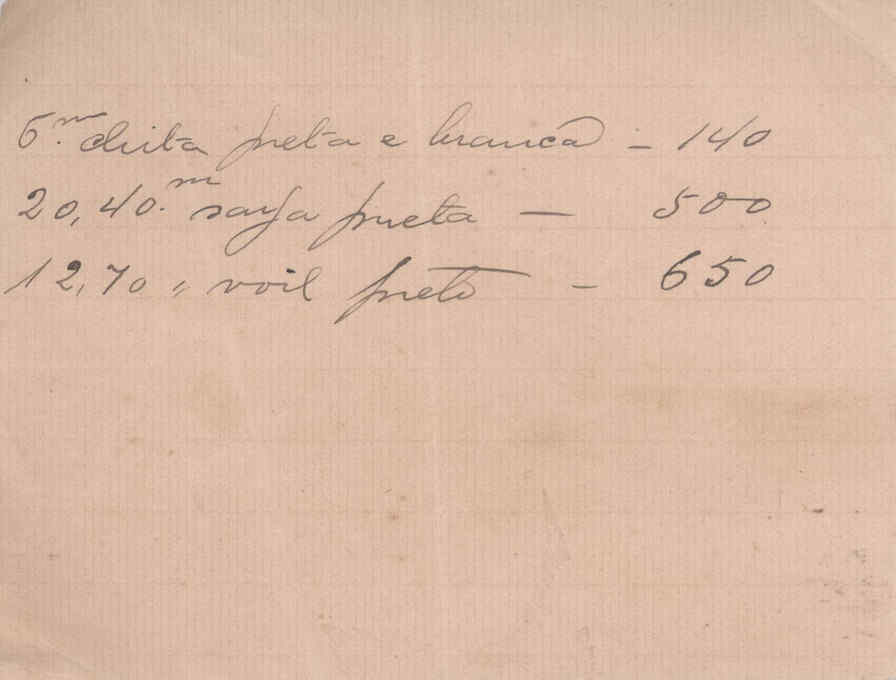 6.m chita preta e branca - 140
20,40.m sarja preta - 500
12,70 " voil preto - 650